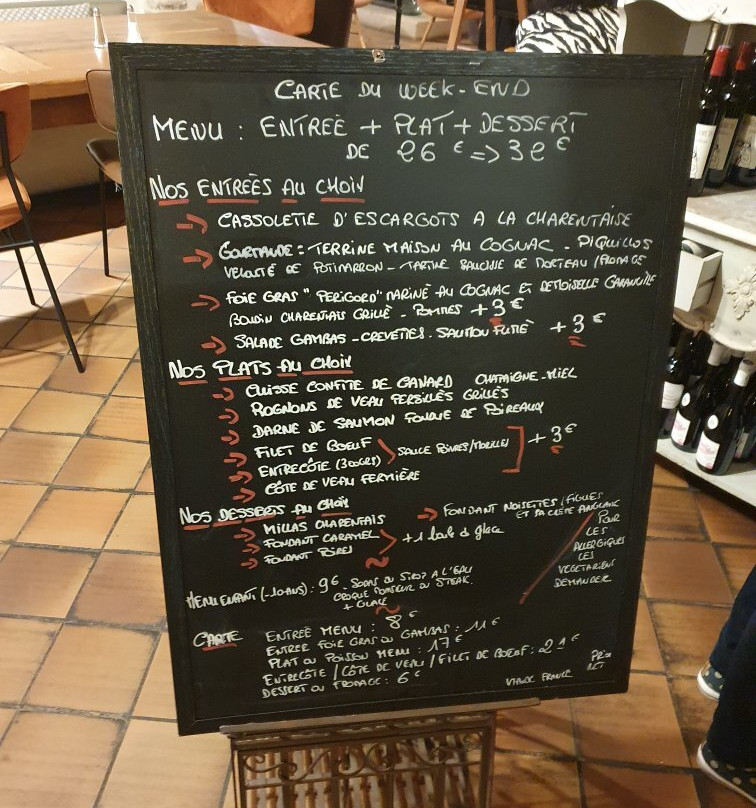 CARTE DU WEEK-END
MENU : ENTREE + PLAT + DESSERT
DE 26 € => 32 €
NOS ENTREES AU CHOIX
CASSOLETTE D'ESCARGOTS A LA CHARENTAISE
GOURMANDE : TERRINE MAISON AU COGNAC - PIQUILLOS
VELOUTÉ DE POTIMARRON - TARTINE SAUCISSE DE MORTEAU / FROMAGE
FOIE GRAS "PERIGORD" MARINÉ AU COGNAC ET DEMOISELLE GARANCILLE
BOUDIN CHARENTAIS GRILLÉ - POMMES +3 €
SALADE GAMBAS - CREVETTES - SAUMON FUMÉ +3 €
NOS PLATS AU CHOIX
CUISSE CONFITE DE CANARD CHAMPAGNE - MIEL
ROGNONS DE VEAU PERSILLÉS GRILLÉS
DARNE DE SAUMON FONDUE DE POIREAUX
FILET DE BOEUF
ENTRECÔTE (300GRS) SAUCE POIVRES/MORILLES +3€
CÔTE DE VEAU FERMIÈRE
NOS DESSERTS AU CHOIX
MILLAS CHARENTAIS
FONDANT CARAMEL
FONDANT POIRES
+ 1 boule de glace
FONDANT NOISETTES / FIGUES
ET SA CREME ANGLAISE
POUR
LES
ALLERGIQUES
LES
VEGETARIENS
DEMANDER
MENU ENFANT (-10 ANS) : 9€ - SODAS OU SIROP A L'EAU
CROQUE MONSIEUR OU STEAK.
+ GLACE
CARTE
ENTREE MENU : 8 €
ENTREE FOIE GRAS OU GAMBAS : 11 €
PLAT OU POISSON MENU : 17 €
ENTRECÔTE / CÔTE DE VEAU / FILET DE BOEUF : 21 €
DESSERT OU FROMAGE : 6 €
PRIX
NET
VIANDE FRANCE